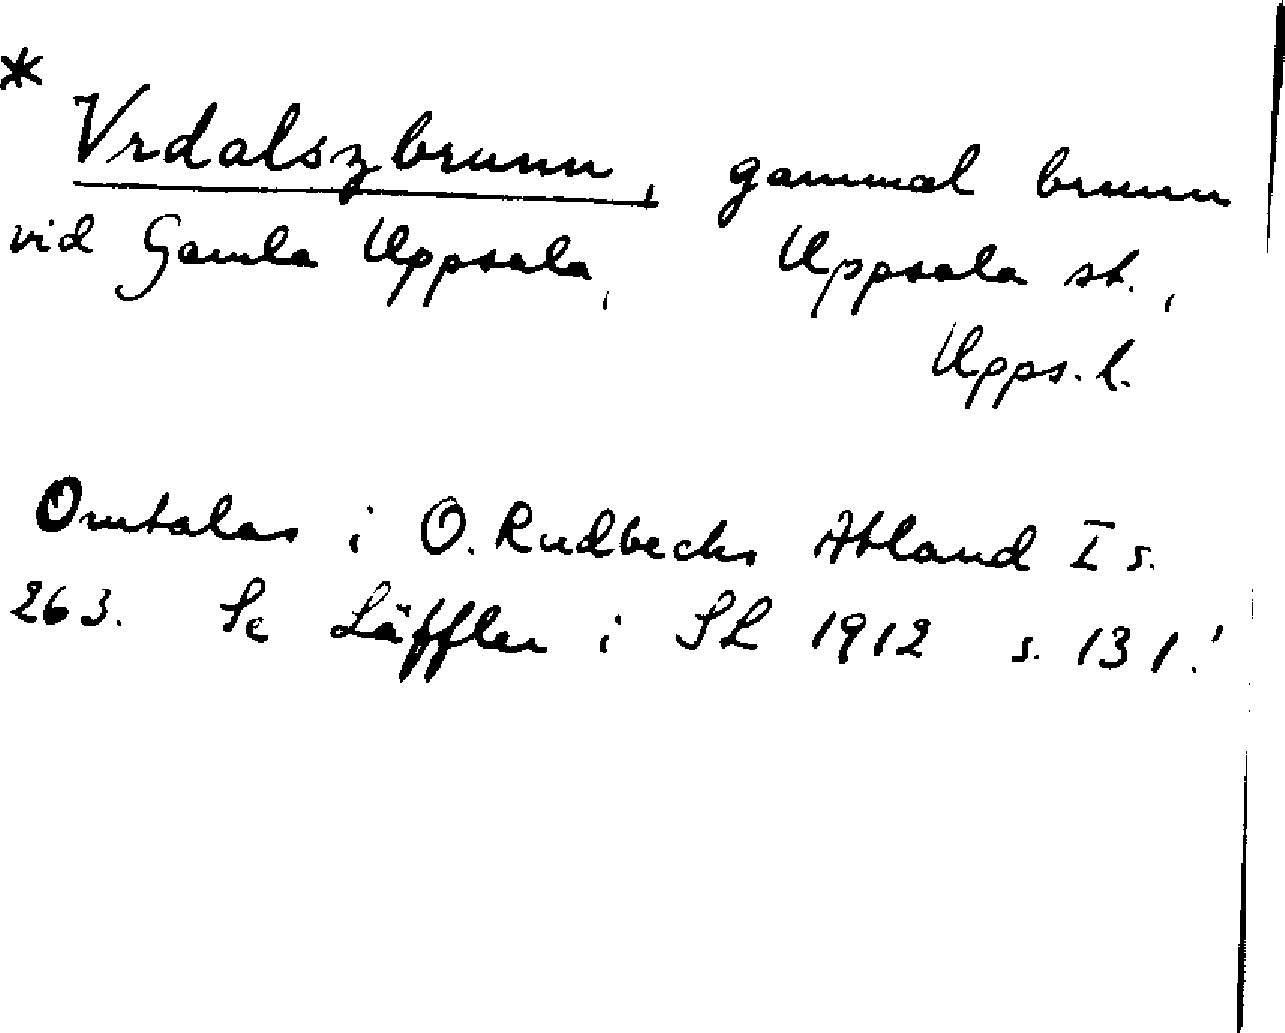 *
Vrdalszbrunn, gammal brunn
vid Gamla Uppsala, Uppsala st.,
Upps. l.
Omtalas i O. Rudbecks Atland I s.
263. Se Läffler i SL 1912 s. 131.